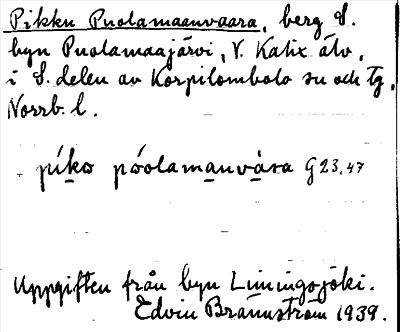 Pikku Puolamaanvaara, berg S.
byn Puolamaajärvi, V. Kalix älv,
i S. delen av Korpilombolo sn och tg,
Norrb. l.
píko póolamanvára G 23,47
Uppgiften från byn Liningojöki.
Edvin Brännström 1939.